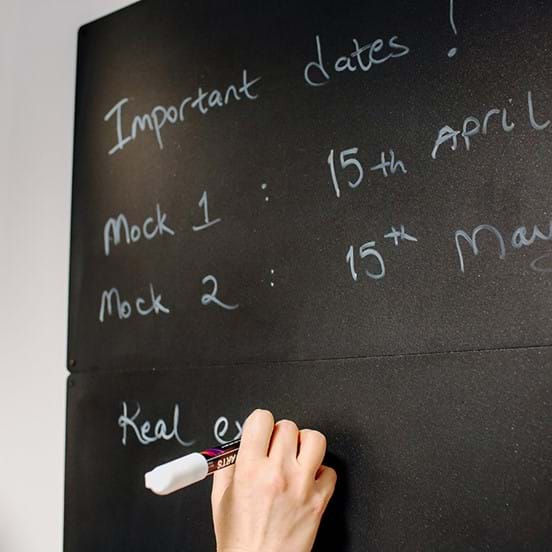 Important dates !
Mock 1 : 15th April
Mock 2 : 15th May
Real
ARTS